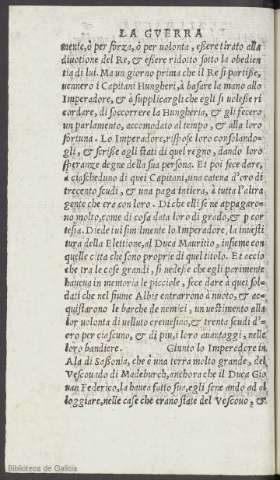 LA GVERRA
mente, ò per forza, ò per uolonta, eſſere tirato alla
diuotione del Re, & eſſere ridotto ſotto la obedien
tia di lui. Ma un giorno prima che il Re ſi partiſſe,
uennero i Capitani Hungheri, à baſare la mano allo
Imperadore, & à ſupplicargli che egli ſi uoleſſe ri
cordare, di ſoccorrere la Hungheria, & gli fecero
un parlamento, accomodato al tempo, & alla loro
fortuna. Lo Imperadore, riſpoſe loro conſolando=
gli, & ſcriſſe agli ſtati di quel regno, dando loro
ſperanze degne della ſua perſona. Et poi fece dare,
à ciaſcheduno di quei Capitani, una catena d'oro di
trecento ſcudi, & una paga intiera, à tutta l'altra
gente che era con loro. Di che elli ſe ne appagaro=
no molto, come di coſa data loro di grado, & p cor
teſia. Diede tui ſimilmente lo Imperadore, la inueſti
tura della Elettione, al Duca Mauritio, inſieme con
quelle città che ſono proprie di quel titolo. Et accio
che tra le coſe grandi, ſi uedeſſe che egli parimente
haueua in memoria le picciole, fece dare à quei ſol=
dati che nel fiume Albis entrarono à nuoto, & ac=
quiſtarono le barche de nemici, un ueſtimento allo
lor uolonta di uelluto cremeſino, & trenta ſcudi d'o=
ro per ciaſcuno, & di piu, i loro auantaggi, nelle
loro bandiere. Giunto lo Imperadore in
Ala di Saſſonia, che è una terra molto grande, del
Veſcouado di Madeburch, anchora che il Duca Gio
uan Federico, la haueua fatta ſua, egli ſene andò ad al
loggiare, nelle caſe che erano ſtate del Veſcouo, &
Biblioteca de Galicia